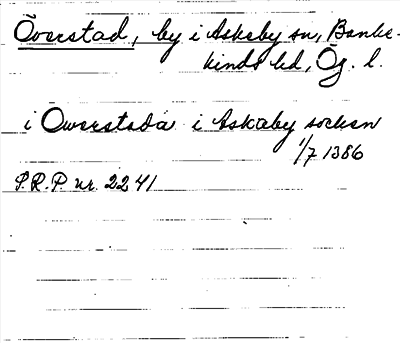 Överstad, by i Askeby sn, Banke-
kinds hd, Ög. l.
i Owerstada i Askaby socken
1/7 1386
S.R.P. nr. 2241